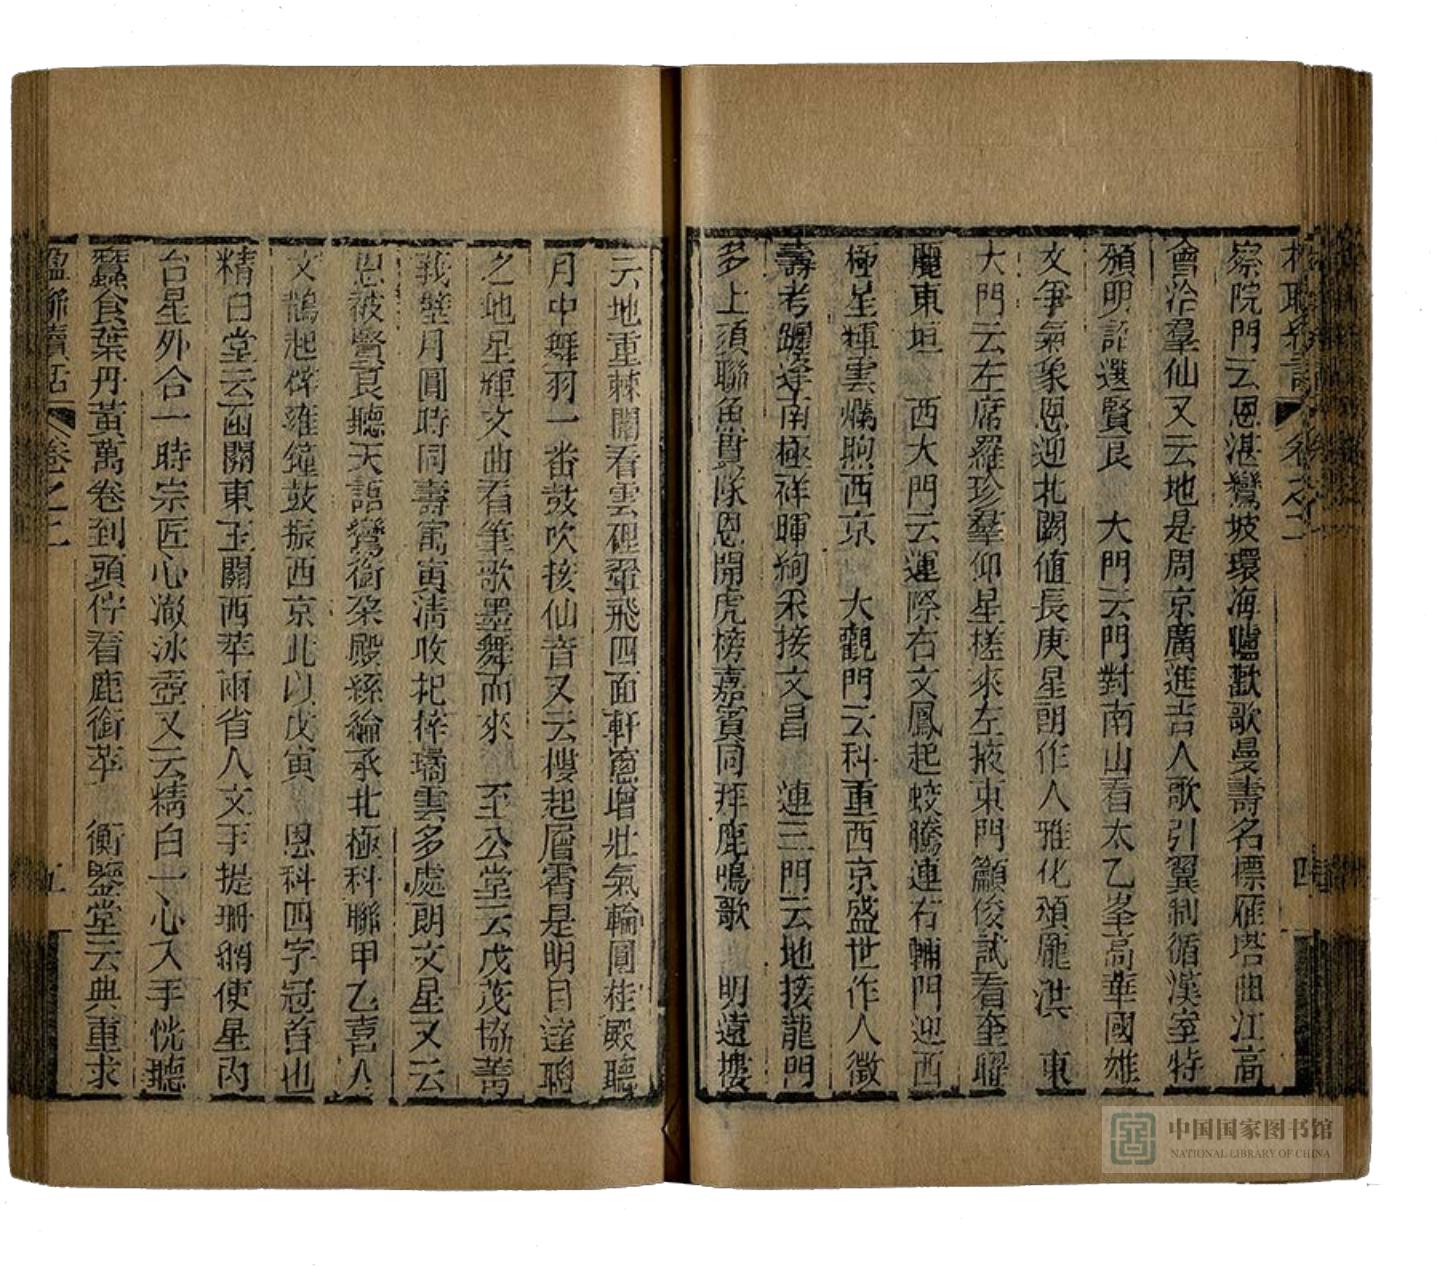 卷之二 四
察院門云恩湛鸞坡環海臚歡歌曼壽名標雁塔曲江高
會洽羣仙又云地是周京廣進吉人歌引翼制循漢室特
頒明詔選賢良 大門云門對南山看太乙峯高華國雄
文爭氣象恩迎北闕值長庚星朗作人雅化頌龐洪 東
大門云左席羅珍羣仰星槎來左掖東門籲俊試看奎躍
麗東垣 西大門云運際右文鳳起蛟騰連右輔門迎西
極星輝雲爛煦西京 大觀門云科重西京盛世作人徵
壽考躔逢南極祥暉絢采接文昌 連三門云地接龍門
多上頭聯魚貫隊恩開虎榜嘉賓同拜鹿鳴歌 明遠樓
云地重棘闈看雲礎翬飛四面軒窻增壯氣輪圓桂殿聽
月中舞羽一番鼓吹接仙音又云樓起層霄是明目達聰
之地星輝文曲看筆歌墨舞而來 至公堂云戊茂協菁
莪璧月圓時同壽寓寅淸收杞梓矞雲多處朗文星又云
恩被賢良聽天語鸞銜朶殿絲綸承北極科聯甲乙喜人
文鵲起辟雍鐘鼓振西京此以戊寅 恩科四字冠首也
精白堂云函關東玉關西萃兩省人文手提珊網使星內
台星外合一時宗匠心澈冰壺又云精白一心入手恍聽
蠶食葉丹黃萬卷到頭佇看鹿銜苹 衡鑒堂云典重求
楹聯續話 卷之二 五
中国国家图书馆
NATIONAL LIBRARY OF CHINA